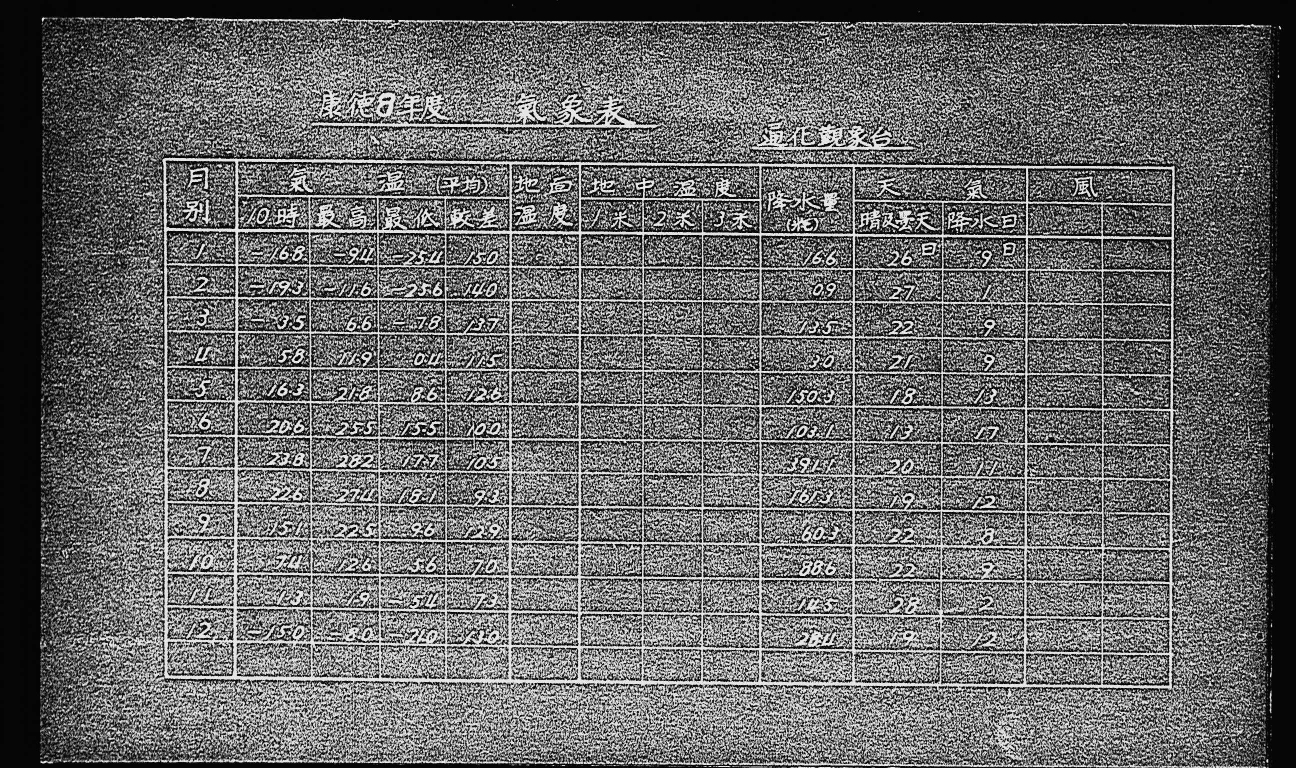 康徳8年度 氣象表
通化觀象台
月別 氣温 (平均) 地面温度 地中温度 降水量 天氣 風
10時 最高 最低 較差 1米 2米 3米 (粍) 晴及曇天 降水日
1 -16.8 -9.4 -25.4 15.0 16.6 26日 9日
2 -19.3 -11.6 -25.6 14.0 0.9 27 1
3 -3.5 6.6 -7.8 13.7 13.5 22 9
4 5.8 11.9 0.4 11.5 3.0 21 9
5 16.3 21.8 8.6 12.6 150.3 18 13
6 20.6 25.5 15.5 10.0 103.1 13 17
7 23.8 28.2 17.7 10.5 391.1 20 11
8 22.6 27.4 18.1 9.3 161.3 19 12
9 15.1 22.5 9.6 12.9 60.3 22 8
10 7.4 12.6 5.6 7.0 88.6 22 9
11 1.3 1.9 -5.4 7.3 14.5 28 2
12 -15.0 -8.0 13.0 19 12